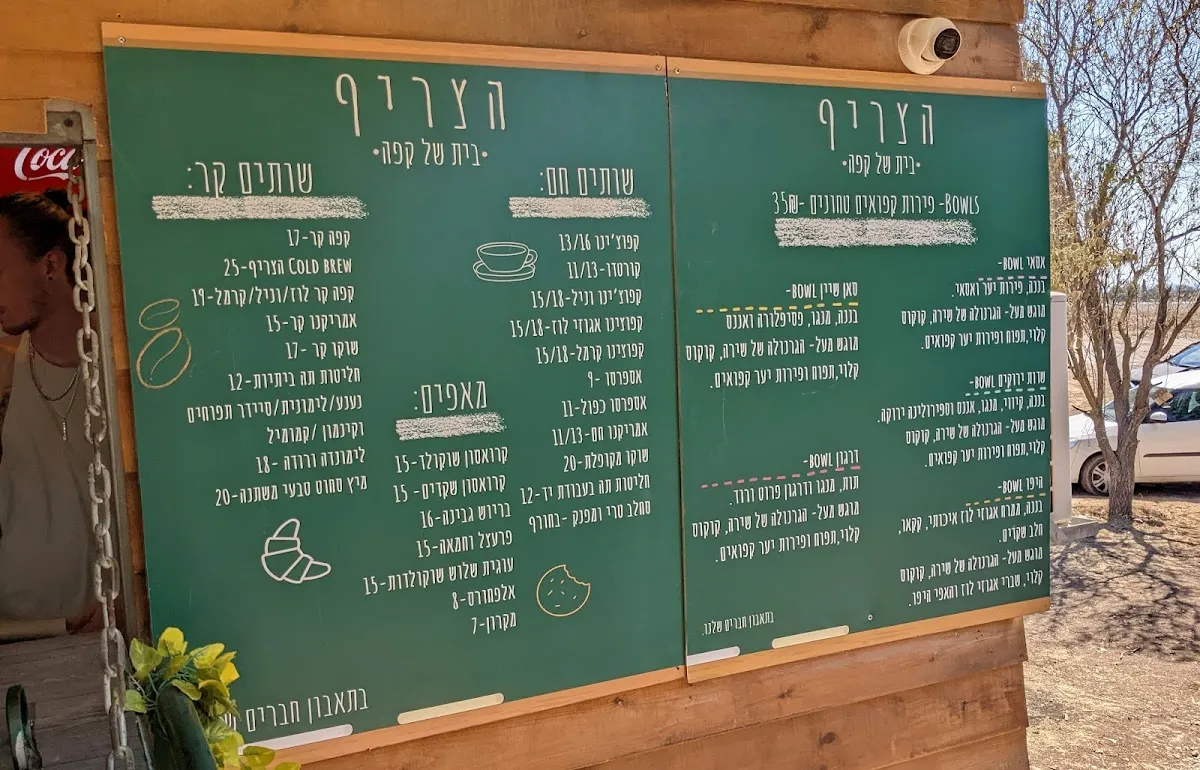 הצריף
•בית של קפה•
שותים חם:
קפוצ'ינו 13/16
קורטדו-11/13
קפוצ'ינו וניל-15/18
קפוצינו אגוזי לוז-15/18
קפוצינו קרמל-15/18
אספרסו -9
אספרסו כפול-11
אמריקנו חם-11/13
שוקו מקופלת-20
חליטות תה בעבודת יד-12
סחלב טרי ומפנק -בחורף
שותים קר:
קפה קר-17
COLD BREW הצריף-25
קפה קר לוז/וניל/קרמל-19
אמריקנו קר-15
שוקו קר -17
חליטות תה ביתיות-12
נענע/לימונית/סיידר תפוחים
וקינמון /קמומיל
לימונדה ורודה -18
מיץ סחוט טבעי משתנה-20
מאפים:
קרואסון שוקולד-15
קרואסון שקדים- 15
בריוש גבינה-16
פרעצל וחמאה-15
עוגית שלוש שוקולדות-15
אלפחורס-8
מקרון-7
בתאבון חברים
הצריף
•בית של קפה•
BOWLS- פירות קפואים טחונים -35₪
אסאי BOWL-
בננה, פירות יער ואסאי.
מוגש מעל- הגרנולה של שירה, קוקוס
קלוי,תפוח ופירות יער קפואים.
שדות ירוקים BOWL-
בננה, קיווי, מנגו, אננס וספירולינה ירוקה.
מוגש מעל- הגרנולה של שירה, קוקוס
קלוי, תפוח ופירות יער קפואים.
היפו BOWL-
בננה, ממרח אגוזי לוז איכותי, קקאו,
חלב שקדים.
מוגש מעל- הגרנולה של שירה, קוקוס
קלוי, שברי אגוזי לוז והאפי היפו.
סאן שיין BOWL-
בננה, מנגו, פסיפלורה ואננס
מוגש מעל- הגרנולה של שירה, קוקוס
קלוי,תפוח ופירות יער קפואים.
דרגון BOWL-
תות, מנגו ודרגון פרוט ורוד.
מוגש מעל- הגרנולה של שירה, קוקוס
קלוי,תפוח ופירות יער קפואים.
בתאבון חברים שלנו.